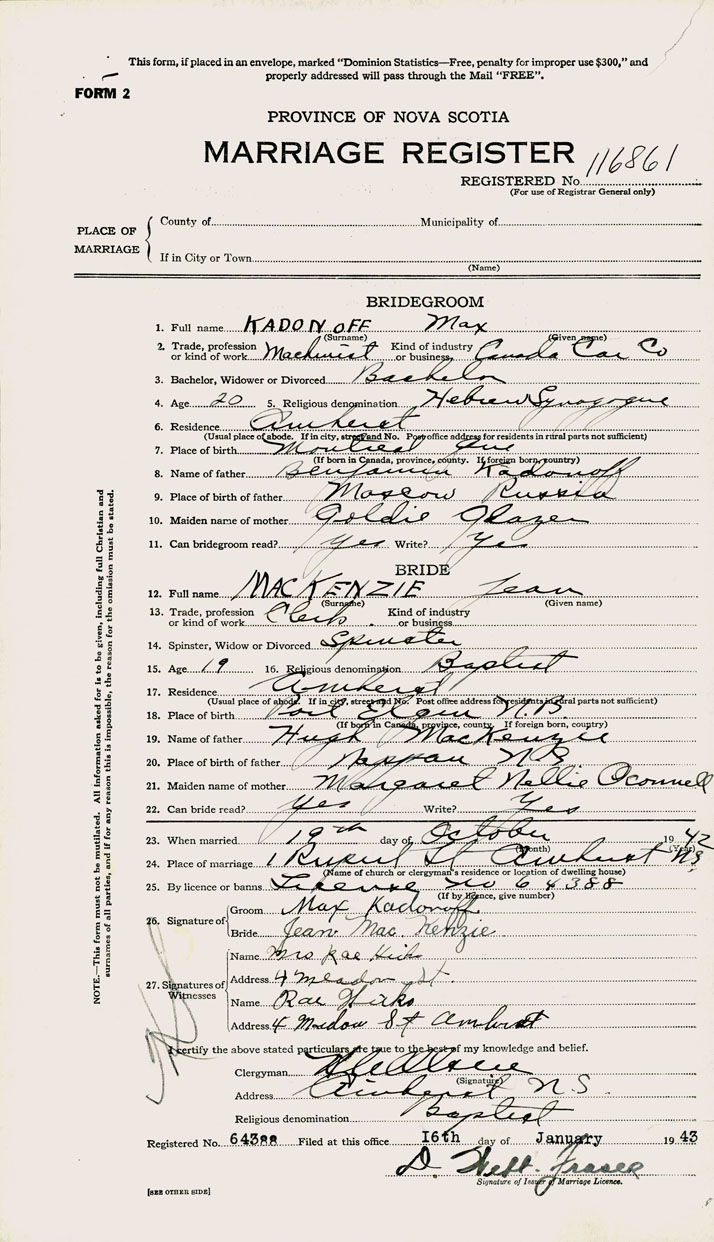 This form, if placed in an envelope, marked “Dominion Statistics—Free, penalty for improper use $300,” and
properly addressed will pass through the Mail “FREE”.
FORM 2
PROVINCE OF NOVA SCOTIA
MARRIAGE REGISTER 116861
REGISTERED No.
(For use of Registrar General only)
PLACE OF MARRIAGE
County of Municipality of
If in City or Town
(Name)
BRIDEGROOM
1. Full name KADONOFF Max
(Surname) (Given name)
2. Trade, profession or kind of work Machinist Kind of industry or business Canada Car Co
3. Bachelor, Widower or Divorced Bachelor
4. Age 20 5. Religious denomination Hebrew Synagogue
6. Residence Amherst
(Usual place of abode. If in city, street and No. Post office address for residents in rural parts not sufficient)
7. Place of birth Montreal
(If born in Canada, province, county. If foreign born, country)
8. Name of father Benjamin Kadonoff
9. Place of birth of father Moscow Russia
10. Maiden name of mother Goldie Glazer
11. Can bridegroom read? Yes Write? Yes
BRIDE
12. Full name MACKENZIE Jean
(Surname) (Given name)
13. Trade, profession or kind of work Clerk Kind of industry or business
14. Spinster, Widow or Divorced Spinster
15. Age 19 16. Religious denomination Baptist
17. Residence Amherst
(Usual place of abode. If in city, street and No. Post office address for residents in rural parts not sufficient)
18. Place of birth Port Elgin N.B.
(If born in Canada, province, county. If foreign born, country)
19. Name of father Hugh MacKenzie
20. Place of birth of father Nappan N.S
21. Maiden name of mother Margaret Nellie Oconnell
22. Can bride read? Yes Write? Yes
23. When married 19th day of October 1942
(Month) (Year)
24. Place of marriage 1 Rupert St Amherst N.S.
(Name of church or clergyman's residence or location of dwelling house)
25. By licence or banns License no 64388
(If by licence, give number)
26. Signature of
Groom Max Kadonoff
Bride Jean Mac Kenzie
27. Signatures of Witnesses
Name Mrs Rae Hicks
Address 4 Meadow St.
Name Rae Hicks
Address 4 Meadow St Amherst
I certify the above stated particulars are true to the best of my knowledge and belief.
Clergyman
(Signature)
Address Amherst N.S.
Religious denomination Baptist
Registered No. 64388 Filed at this office 16th day of January 1943
D. Fraser
Signature of Issuer of Marriage Licence.
[SEE OTHER SIDE]
NOTE.—This form must not be mutilated. All information asked for is to be given, including full Christian and
surnames of all parties, and if for any reason this is impossible, the reason for the omission must be stated.